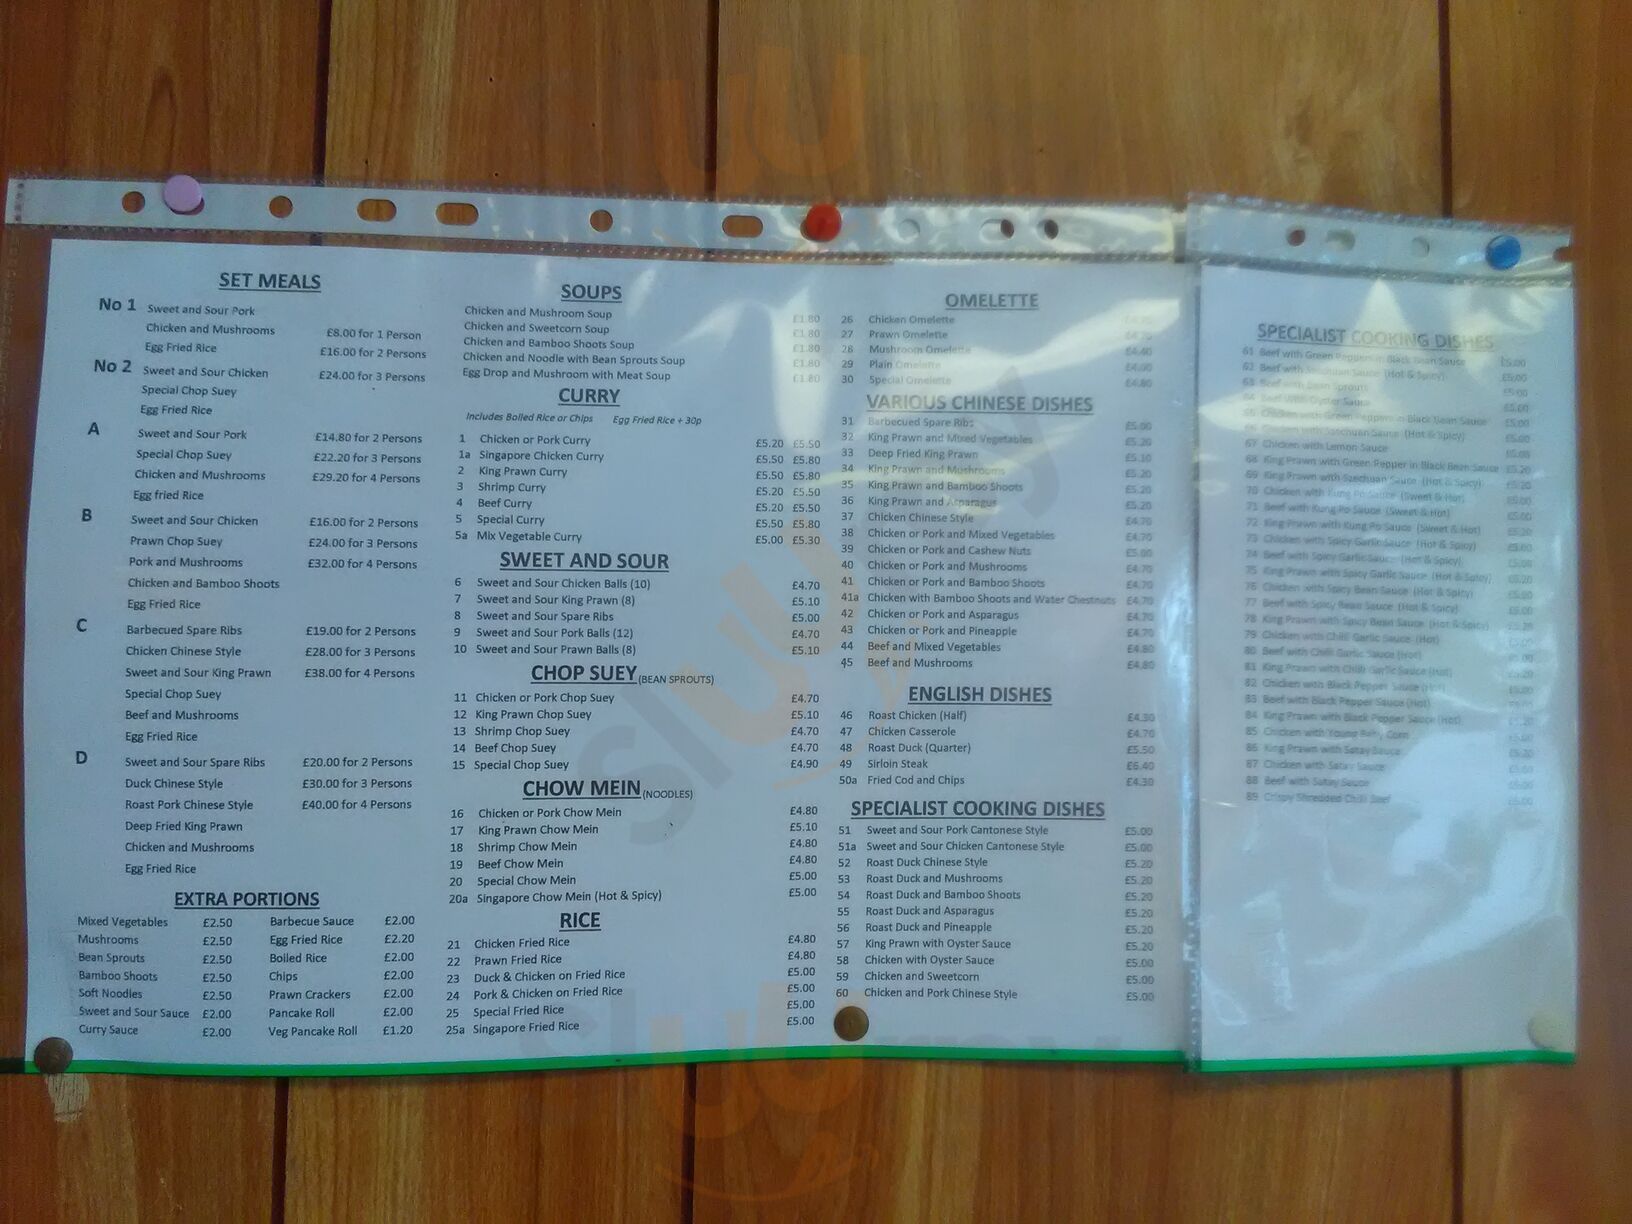 SET MEALS
No 1 Sweet and Sour Pork
Chicken and Mushrooms £8.00 for 1 Person
Egg Fried Rice £16.00 for 2 Persons
No 2 Sweet and Sour Chicken £24.00 for 3 Persons
Special Chop Suey
Egg Fried Rice
A Sweet and Sour Pork £14.80 for 2 Persons
Special Chop Suey £22.20 for 3 Persons
Chicken and Mushrooms £29.20 for 4 Persons
Egg fried Rice
B Sweet and Sour Chicken £16.00 for 2 Persons
Prawn Chop Suey £24.00 for 3 Persons
Pork and Mushrooms £32.00 for 4 Persons
Chicken and Bamboo Shoots
Egg Fried Rice
C Barbecued Spare Ribs £19.00 for 2 Persons
Chicken Chinese Style £28.00 for 3 Persons
Sweet and Sour King Prawn £38.00 for 4 Persons
Special Chop Suey
Beef and Mushrooms
Egg Fried Rice
D Sweet and Sour Spare Ribs £20.00 for 2 Persons
Duck Chinese Style £30.00 for 3 Persons
Roast Pork Chinese Style £40.00 for 4 Persons
Deep Fried King Prawn
Chicken and Mushrooms
Egg Fried Rice
EXTRA PORTIONS
Mixed Vegetables £2.50 Barbecue Sauce £2.00
Mushrooms £2.50 Egg Fried Rice £2.20
Bean Sprouts £2.50 Boiled Rice £2.00
Bamboo Shoots £2.50 Chips £2.00
Soft Noodles £2.50 Prawn Crackers £2.00
Sweet and Sour Sauce £2.00 Pancake Roll £2.00
Curry Sauce £2.00 Veg Pancake Roll £1.20
SOUPS
Chicken and Mushroom Soup £1.80
Chicken and Sweetcorn Soup £1.80
Chicken and Bamboo Shoots Soup £1.80
Chicken and Noodle with Bean Sprouts Soup £1.80
Egg Drop and Mushroom with Meat Soup £1.80
CURRY
Includes Boiled Rice or Chips Egg Fried Rice + 30p
1 Chicken or Pork Curry £5.20 £5.50
1a Singapore Chicken Curry £5.50 £5.80
2 King Prawn Curry £5.50 £5.80
3 Shrimp Curry £5.20 £5.50
4 Beef Curry £5.20 £5.50
5 Special Curry £5.50 £5.80
5a Mix Vegetable Curry £5.00 £5.30
SWEET AND SOUR
6 Sweet and Sour Chicken Balls (10) £4.70
7 Sweet and Sour King Prawn (8) £5.10
8 Sweet and Sour Spare Ribs £5.00
9 Sweet and Sour Pork Balls (12) £4.70
10 Sweet and Sour Prawn Balls (8) £5.10
CHOP SUEY (BEAN SPROUTS)
11 Chicken or Pork Chop Suey £4.70
12 King Prawn Chop Suey £5.10
13 Shrimp Chop Suey £4.70
14 Beef Chop Suey £4.70
15 Special Chop Suey £4.90
CHOW MEIN (NOODLES)
16 Chicken or Pork Chow Mein £4.80
17 King Prawn Chow Mein £5.10
18 Shrimp Chow Mein £4.80
19 Beef Chow Mein £4.80
20 Special Chow Mein £5.00
20a Singapore Chow Mein (Hot & Spicy) £5.00
RICE
21 Chicken Fried Rice £4.80
22 Prawn Fried Rice £4.80
23 Duck & Chicken on Fried Rice £5.00
24 Pork & Chicken on Fried Rice £5.00
25 Special Fried Rice £5.00
25a Singapore Fried Rice £5.00
OMELETTE
26 Chicken Omelette
27 Prawn Omelette
28 Mushroom Omelette £4.40
29 Plain Omelette
30 Special Omelette £4.80
VARIOUS CHINESE DISHES
31 Barbecued Spare Ribs £5.00
32 King Prawn and Mixed Vegetables £5.20
33 Deep Fried King Prawn £5.10
34 King Prawn and Mushrooms £5.20
35 King Prawn and Bamboo Shoots £5.20
36 King Prawn and Asparagus £5.20
37 Chicken Chinese Style £4.70
38 Chicken or Pork and Mixed Vegetables £4.70
39 Chicken or Pork and Cashew Nuts £5.00
40 Chicken or Pork and Mushrooms £4.70
41 Chicken or Pork and Bamboo Shoots £4.70
41a Chicken with Bamboo Shoots and Water Chestnuts £4.70
42 Chicken or Pork and Asparagus £4.70
43 Chicken or Pork and Pineapple £4.70
44 Beef and Mixed Vegetables £4.80
45 Beef and Mushrooms £4.80
ENGLISH DISHES
46 Roast Chicken (Half) £4.30
47 Chicken Casserole £4.70
48 Roast Duck (Quarter) £5.50
49 Sirloin Steak £6.40
50a Fried Cod and Chips £4.30
SPECIALIST COOKING DISHES
51 Sweet and Sour Pork Cantonese Style £5.00
51a Sweet and Sour Chicken Cantonese Style £5.00
52 Roast Duck Chinese Style £5.20
53 Roast Duck and Mushrooms £5.20
54 Roast Duck and Bamboo Shoots £5.20
55 Roast Duck and Asparagus £5.20
56 Roast Duck and Pineapple £5.20
57 King Prawn with Oyster Sauce £5.20
58 Chicken with Oyster Sauce £5.00
59 Chicken and Sweetcorn £5.00
60 Chicken and Pork Chinese Style £5.00
SPECIALIST COOKING DISHES
61 Beef with Green Peppers in Black Bean Sauce £5.00
62 Beef with Szechuan Sauce (Hot & Spicy) £5.00
63 Beef with Bean Sprouts £5.00
64 Beef with Oyster Sauce £5.00
65 Chicken with Green Peppers in Black Bean Sauce £5.00
66 Chicken with Szechuan Sauce (Hot & Spicy) £5.00
67 Chicken with Lemon Sauce £5.00
68 King Prawn with Green Pepper in Black Bean Sauce £5.20
69 King Prawn with Szechuan Sauce (Hot & Spicy) £5.20
70 Chicken with Kung Po Sauce (Sweet & Hot) £5.00
71 Beef with Kung Po Sauce (Sweet & Hot) £5.00
72 King Prawn with Kung Po Sauce (Sweet & Hot) £5.20
73 Chicken with Spicy Garlic Sauce (Hot & Spicy) £5.00
74 Beef with Spicy Garlic Sauce (Hot & Spicy) £5.00
75 King Prawn with Spicy Garlic Sauce (Hot & Spicy) £5.20
76 Chicken with Spicy Bean Sauce (Hot & Spicy) £5.00
77 Beef with Spicy Bean Sauce (Hot & Spicy) £5.00
78 King Prawn with Spicy Bean Sauce (Hot & Spicy) £5.20
79 Chicken with Chilli Garlic Sauce (Hot) £5.00
80 Beef with Chilli Garlic Sauce (Hot) £5.00
81 King Prawn with Chilli Garlic Sauce (Hot) £5.20
82 Chicken with Black Pepper Sauce (Hot) £5.00
83 Beef with Black Pepper Sauce (Hot) £5.00
84 King Prawn with Black Pepper Sauce (Hot) £5.20
85 Chicken with Young Baby Corn £5.00
86 King Prawn with Satay Sauce £5.20
87 Chicken with Satay Sauce £5.00
88 Beef with Satay Sauce £5.00
89 Crispy Shredded Chilli Beef £5.00
sluurpy